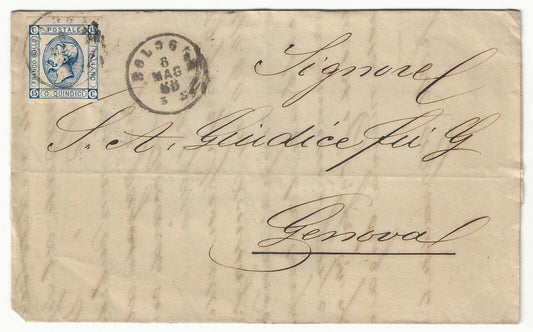 C POSTALE C
FRANCO BOLLO
ITALIANO
15 C. QUINDICI C
BOLOGNA
8
MAG
5 S
Signore
S. A. Giudice fu G
Genova